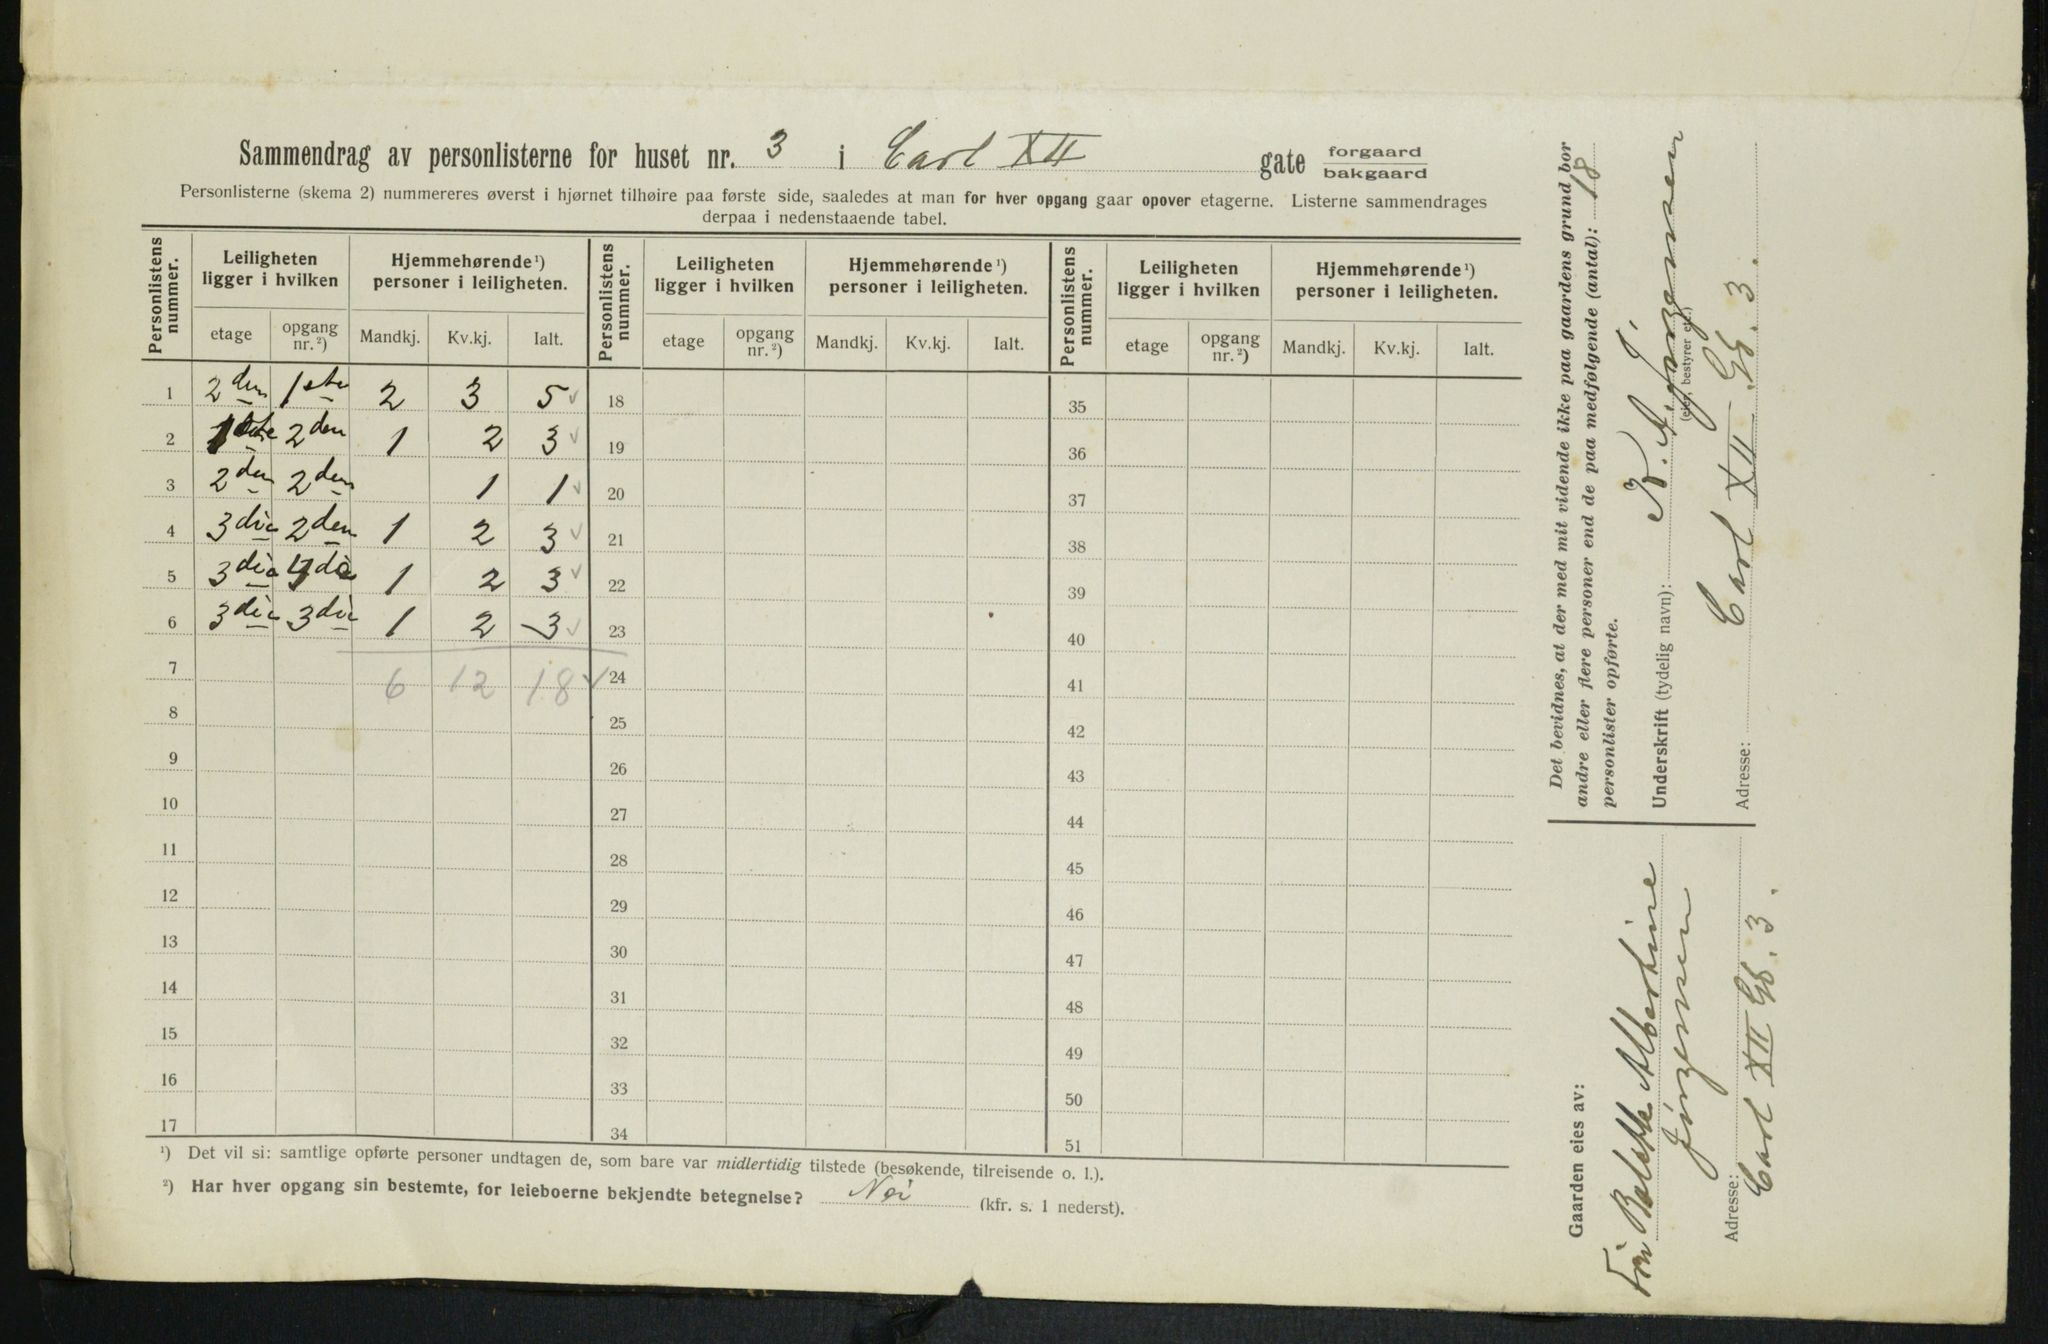 Sammendrag av personlisterne for huset nr. 3 i Carl XII gate forgaard bakgaard
Personlisterne (skema 2) nummereres øverst i hjørnet tilhøire paa første side, saaledes at man for hver opgang gaar opover etagerne. Listerne sammendrages
derpaa i nedenstaaende tabel.
Personlistens nummer. Leiligheten ligger i hvilken Hjemmehørende ¹) personer i leiligheten. Personlistens nummer. Leiligheten ligger i hvilken Hjemmehørende ¹) personer i leiligheten. Personlistens nummer. Leiligheten ligger i hvilken Hjemmehørende ¹) personer i leiligheten.
etage opgang nr. ²) Mandkj. Kv.kj. Ialt. etage opgang nr. ²) Mandkj. Kv.kj. Ialt. etage opgang nr. ²) Mandkj. Kv.kj. Ialt.
1 2den 1ste 2 3 5 18 35
2 1ste 2den 1 2 3 19 36
3 2den 2den 1 1 20 37
4 3die 2den 1 2 3 21 38
5 3die 1 2 3 22 39
6 3die 3die 1 2 3 23 40
7 6 12 18 24 41
8 25 42
9 26 43
10 27 44
11 28 45
12 29 46
13 30 47
14 31 48
15 32 49
16 33 50
17 34 51
¹) Det vil si: samtlige opførte personer undtagen de, som bare var midlertidig tilstede (besøkende, tilreisende o. l.).
²) Har hver opgang sin bestemte, for leieboerne bekjendte betegnelse? Nei (kfr. s. 1 nederst).
Gaarden eies av:
Albertine
Jürgensen
Adresse:
Carl XII Gd. 3.
Det bevidnes, at der med mit vidende ikke paa gaardens grund bor
andre eller flere personer end de paa medfølgende (antal): 18
personlister opførte.
Underskrift (tydelig navn): Jürgensen
(eier, bestyrer etc.)
Adresse: Carl XII Gd. 3.